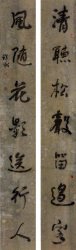 清聽松聲留過客
風隨花影送行人